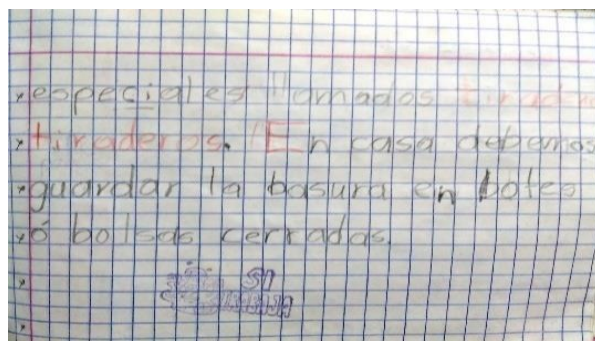 especiales llamados tiradero
tiraderos. En casa debemos
guardar la basura en botes
ó bolsas cerradas.
SI
TRABAJA